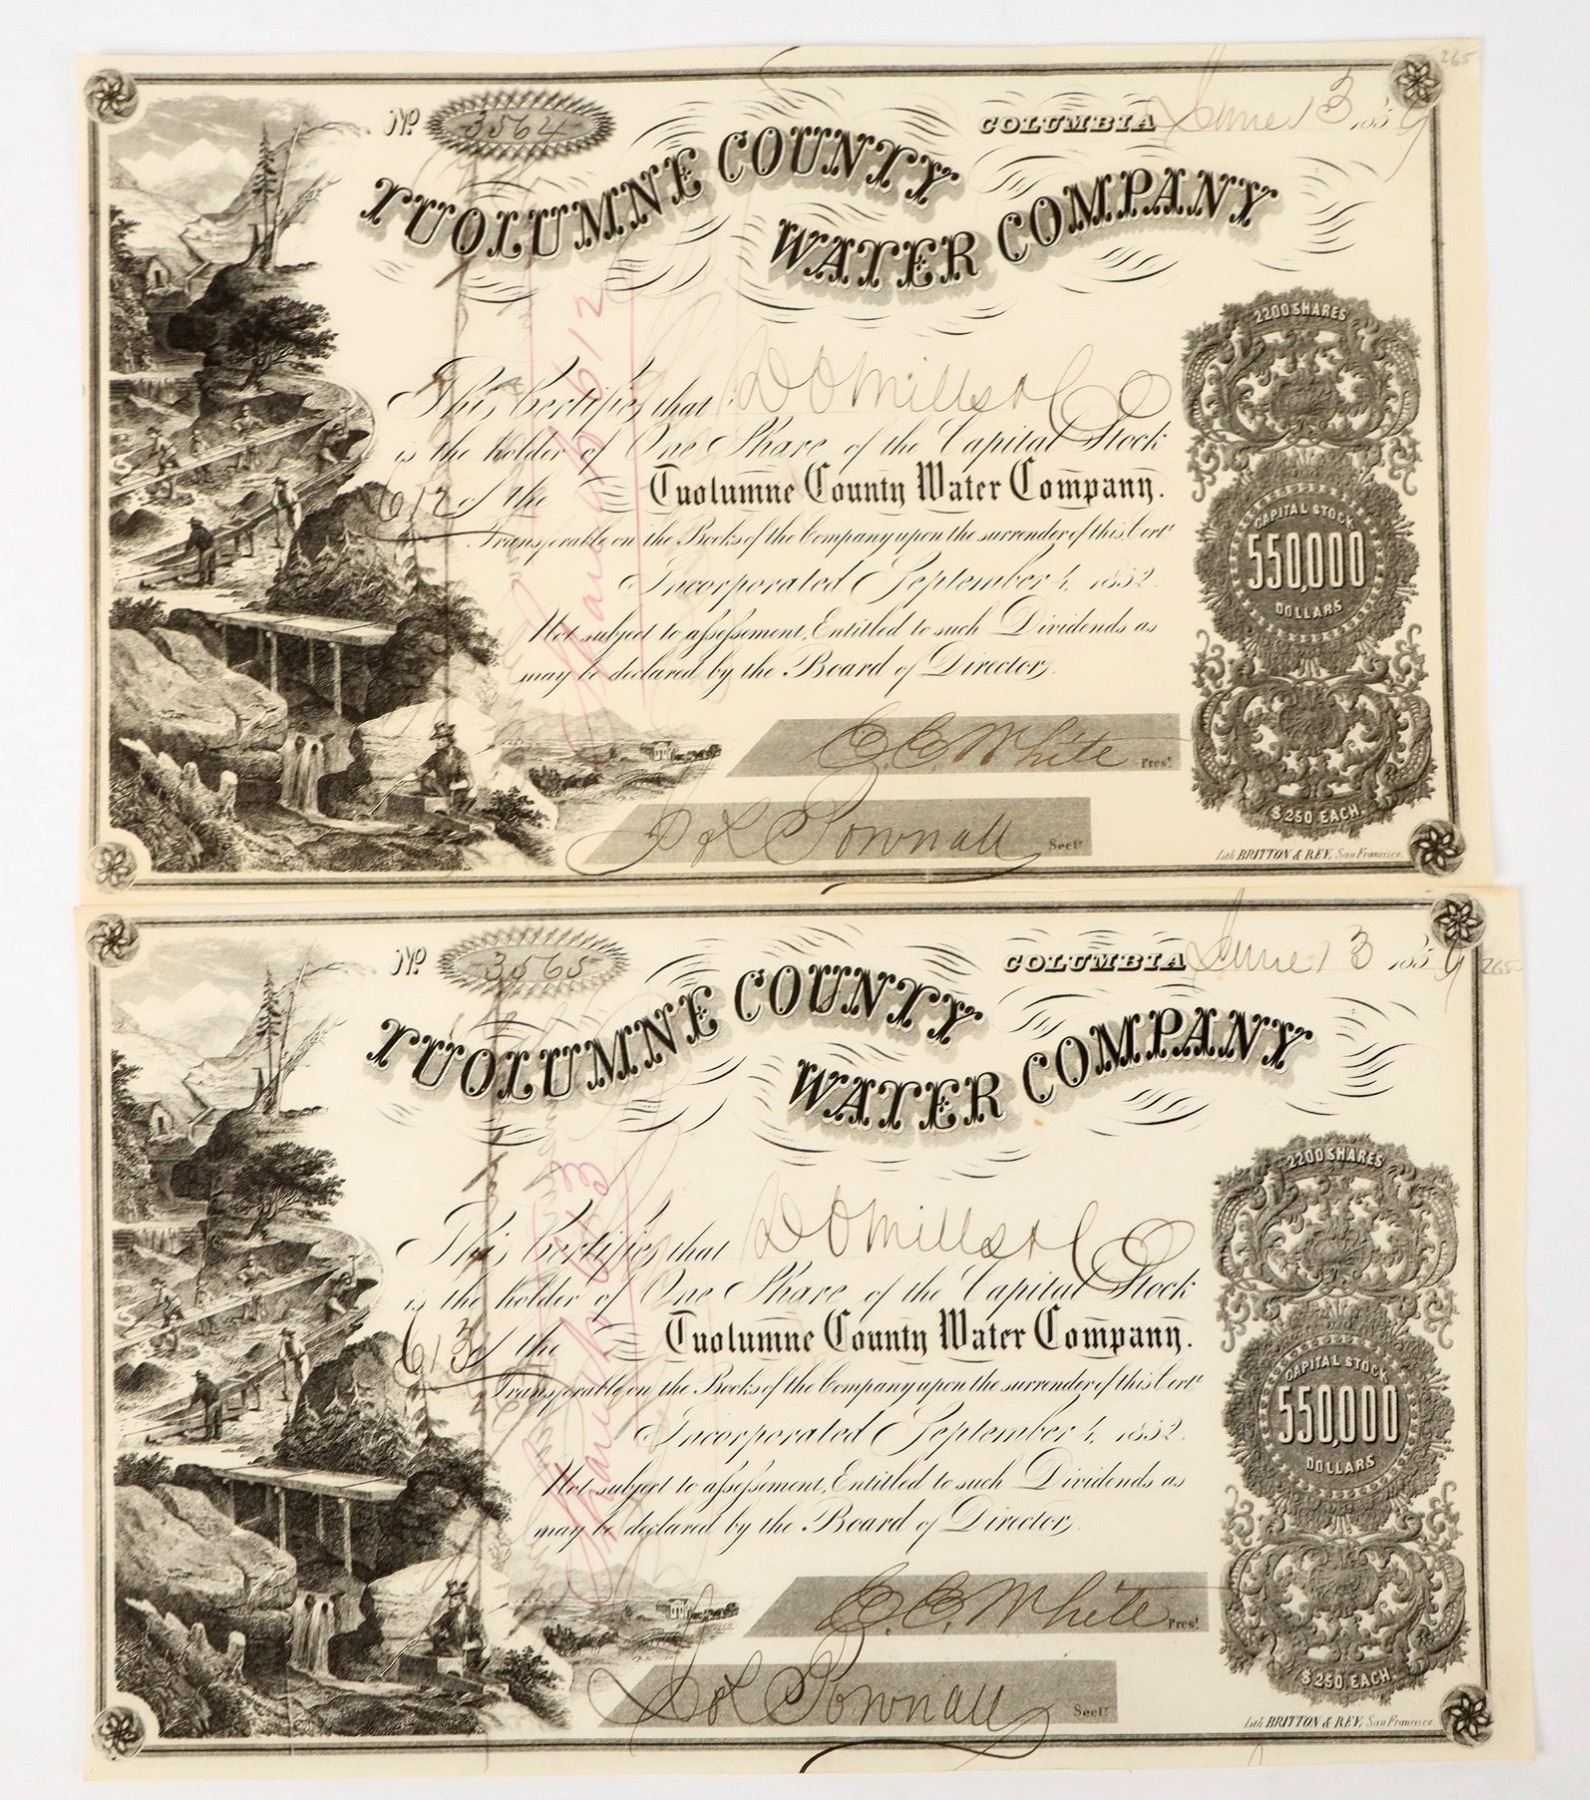 265
No 3564 COLUMBIA June 13 1859
TUOLUMNE COUNTY
WATER COMPANY
2200 SHARES
This Certifies that D O Mills & Co
is the holder of One Share of the Capital Stock
612 of the Tuolumne County Water Company.
Transferable on the Books of the Company upon the surrender of this Certt
Incorporated September 4, 1852.
Not subject to assessment, Entitled to such Dividends as
may be declared by the Board of Directors.
CAPITAL STOCK
550,000
DOLLARS
Share No 612
E. E. White Prest.
$250 EACH.
Pownall Secty.
Lith. BRITTON & REY, San Francisco.
No 3565 COLUMBIA June 13 1859 265
TUOLUMNE COUNTY
WATER COMPANY
2200 SHARES
This Certifies that D O Mills & Co
is the holder of One Share of the Capital Stock
613 of the Tuolumne County Water Company.
Transferable on the Books of the Company upon the surrender of this Certt
Incorporated September 4, 1852.
Not subject to assessment, Entitled to such Dividends as
may be declared by the Board of Directors.
CAPITAL STOCK
550,000
DOLLARS
Share No 613
E. E. White Prest.
$250 EACH.
Pownall Secty.
Lith. BRITTON & REY, San Francisco.